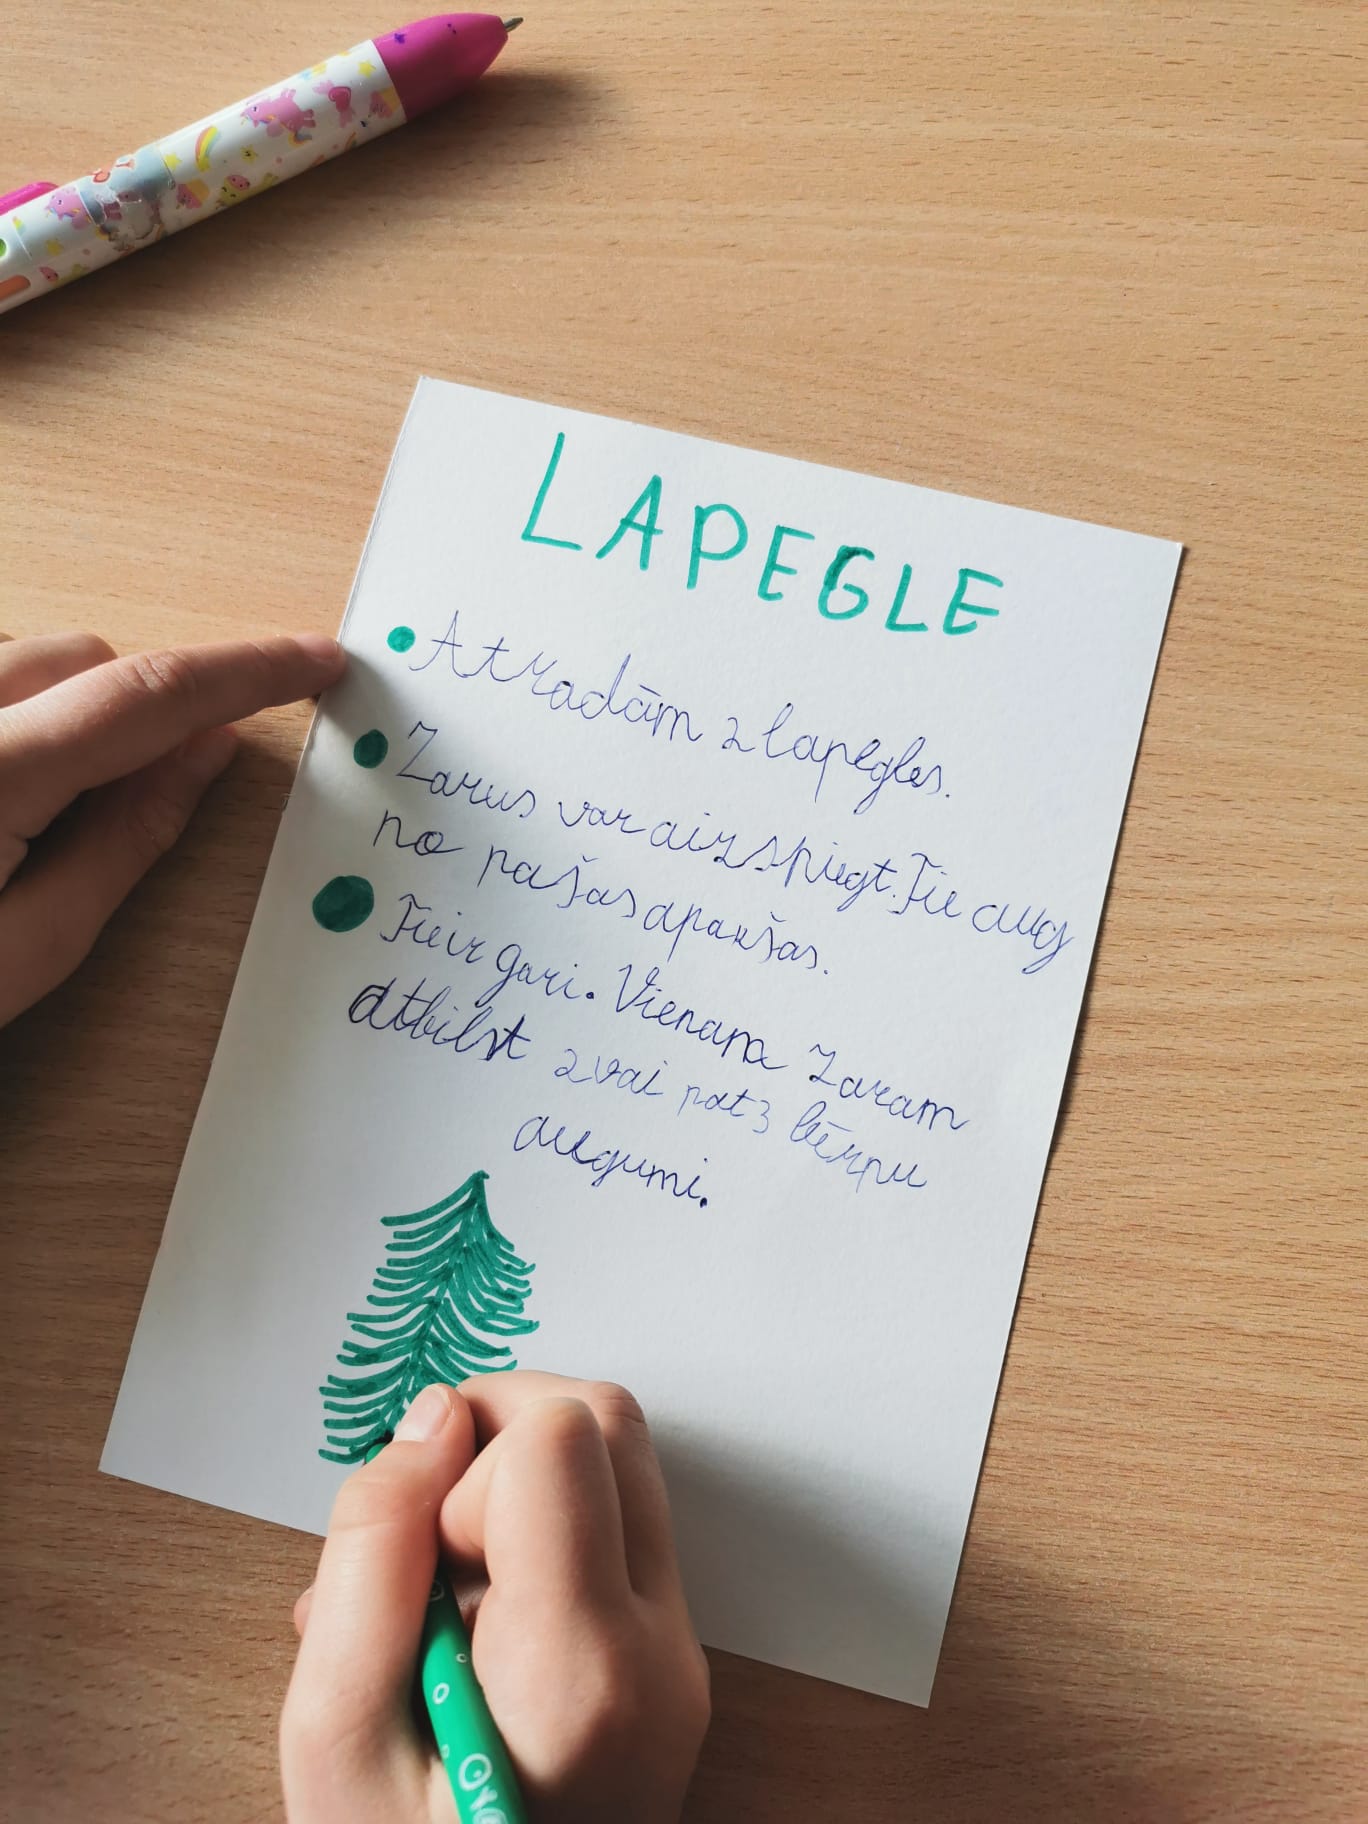 LAPEGLE
Atradām 2 lapegles.
Zarus var aizspiegt. Tie aug
no pašas apakšas.
Tie ir gari. Vienam zaram
atbilst 2 vai pat 3 bērnu
augumi.